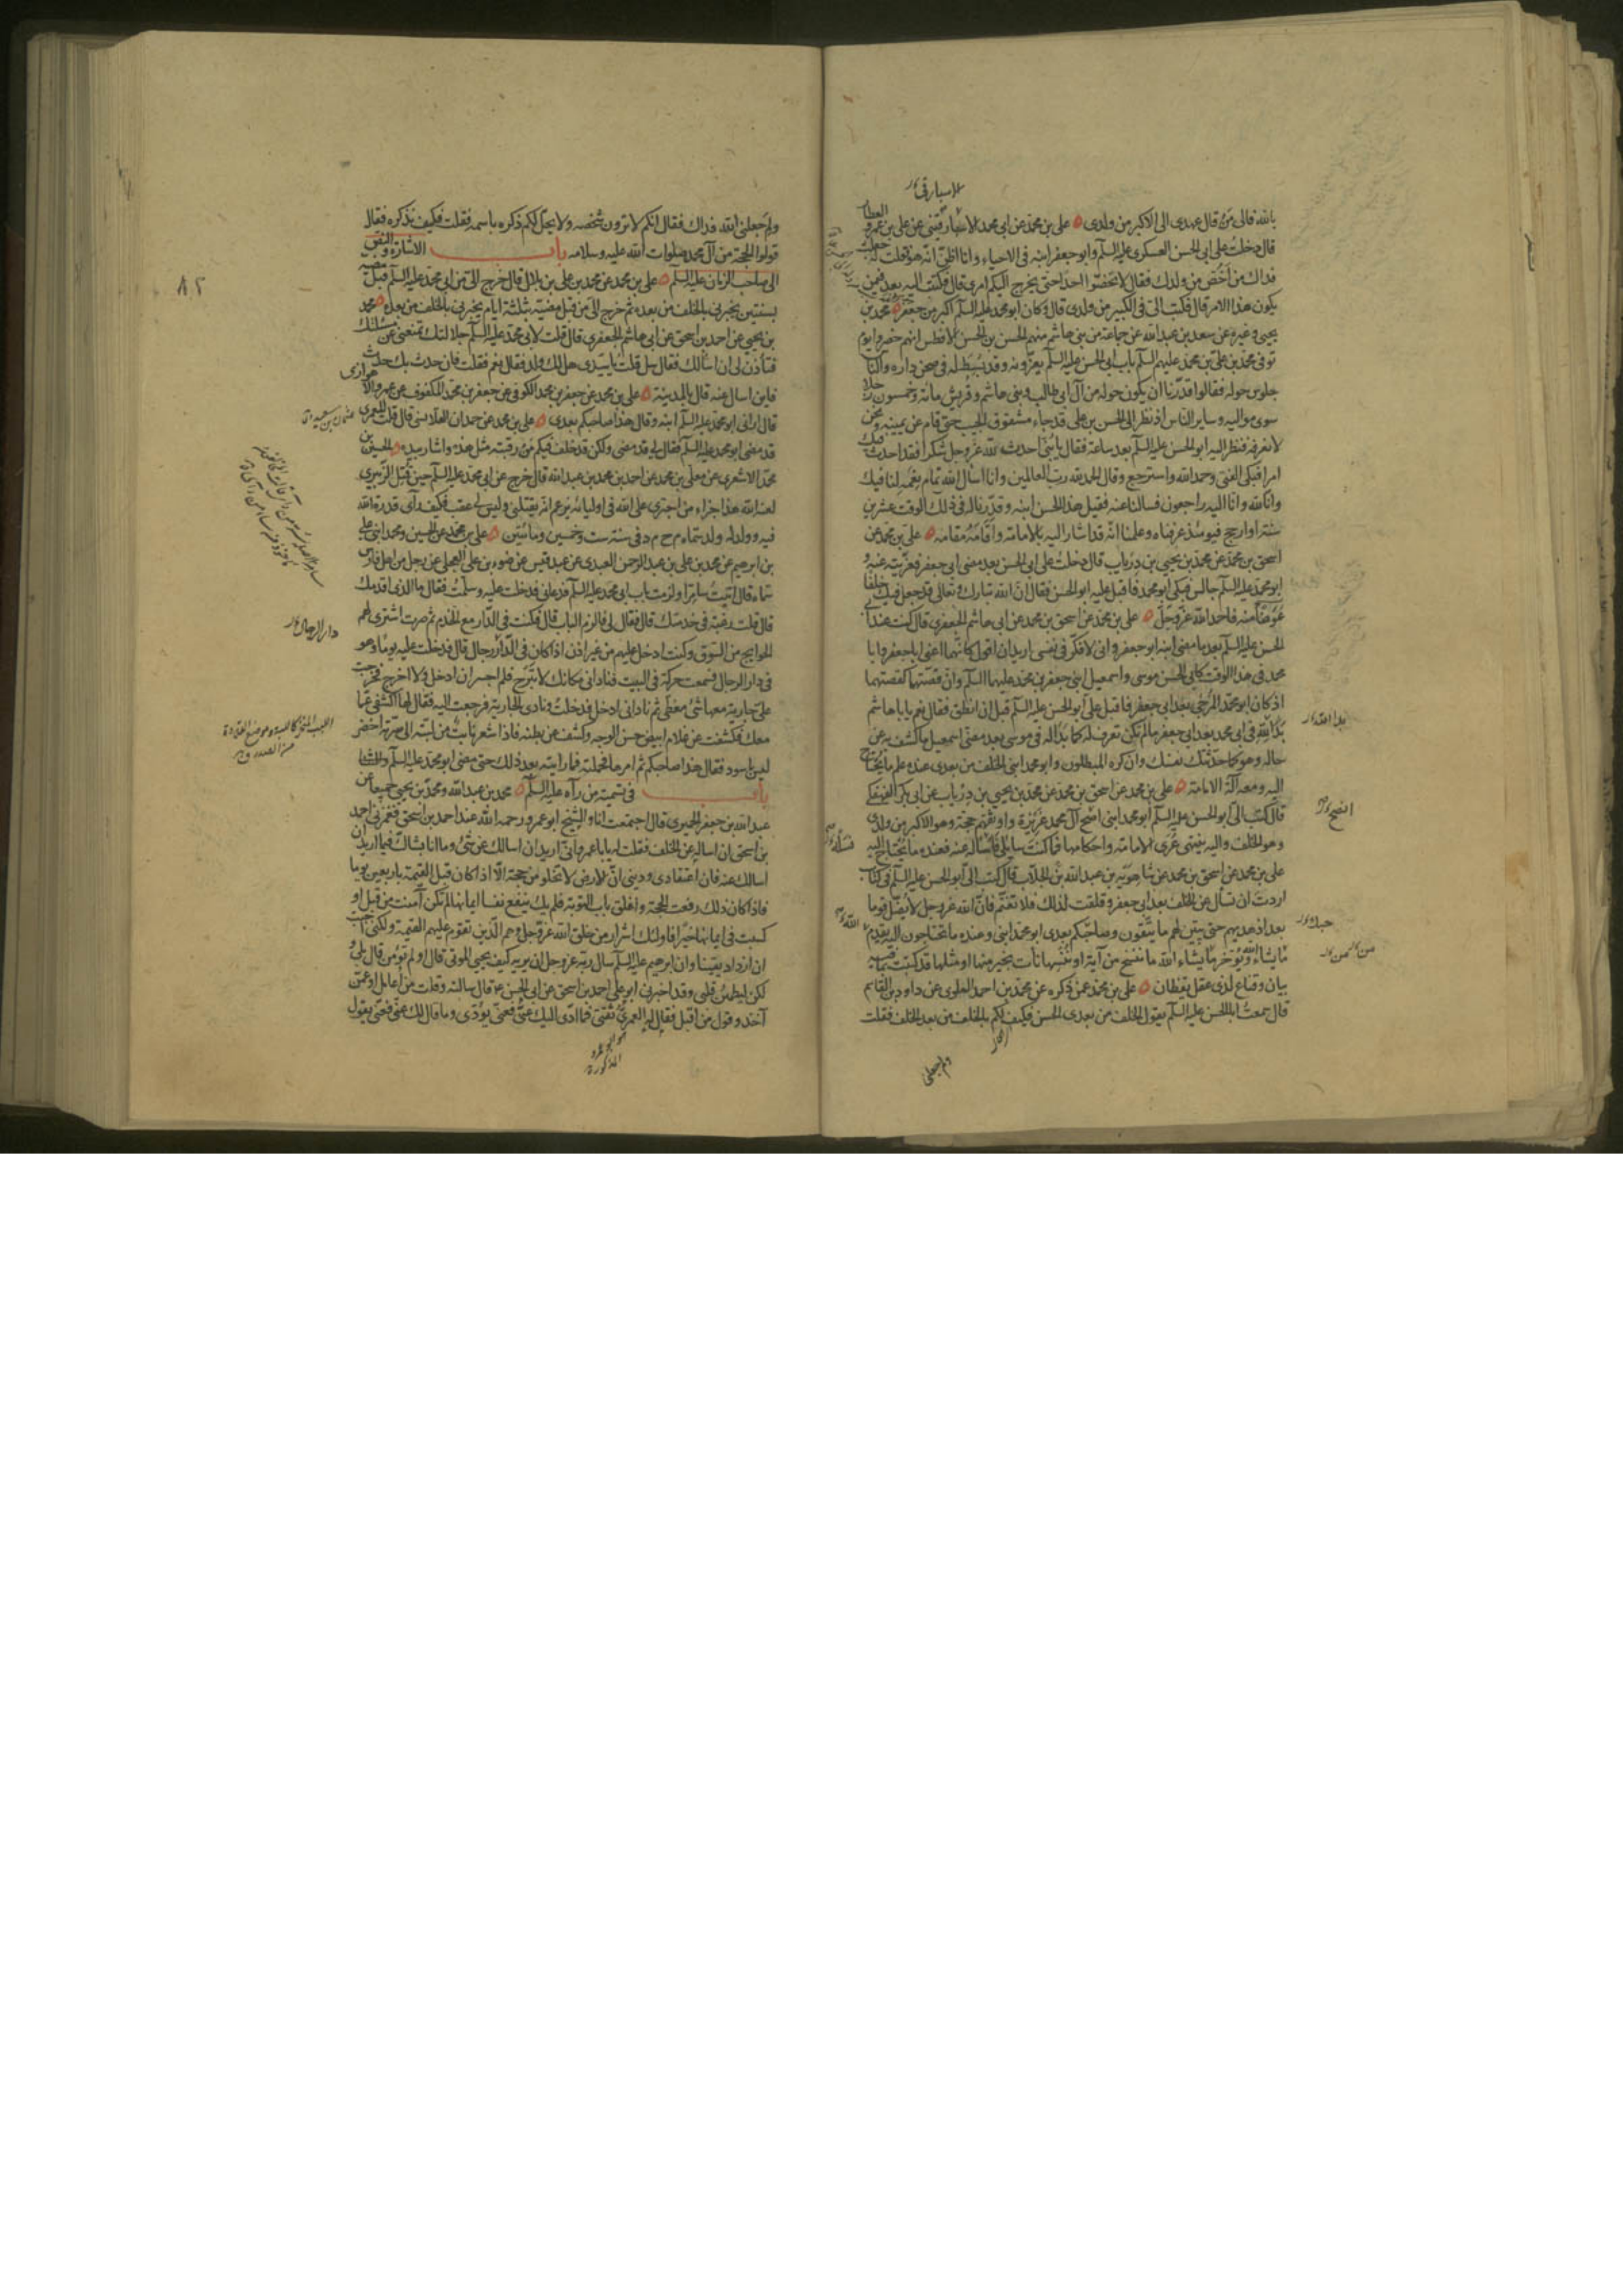 بالله فالى من قال عهدى الى الاكبر من ولدى علي بن محمد عن ابى محمد الاسبارقينى عن علي بن عمرو العطار
قال دخلت على ابى الحسن العسكرى عليه السلم وابو جعفر ابنه فى الاحياء وانا اظن انه هو فقلت له جعلت
فداك من اخص من ولدك فقال لا تخصوا احدا حتى يخرج اليكم امرى قال فكتبت اليه بعد فيمن
يكون هذا الامر قال فكتب الى فى الكبير من ولدى قال وكان ابو محمد عليه السلم اكبر من جعفر محمد بن
يحيى وغيره عن سعد بن عبد الله عن جماعة من بنى هاشم منهم الحسن بن الحسن الافطس انهم حضروا يوم
توفى محمد بن على بن محمد عليهم السلم باب ابى الحسن عليه السلم يعزونه وقد بسط له فى صحن داره والناس
جلوس حوله فقالوا قدرنا ان يكون حوله من آل ابى طالب وبنى هاشم وقريش مائة وخمسون رجلا
سوى مواليه وساير الناس اذ نظر الى الحسن بن على قد جاء مشقوق الجيب حتى قام عن يمينه ونحن
لا نعرفه فنظر اليه ابو الحسن عليه السلم بعد ساعة فقال يا بنى احدث لله عز وجل شكرا فقد احدث فيك
امرا فبكى الفتى وحمد الله واسترجع وقال الحمد لله رب العالمين وانا اسال الله تمام نعمه لنا فيك
وانا لله وانا اليه راجعون فسالنا عنه فقيل هذا الحسن ابنه وقدرنا له فى ذلك الوقت عشرين
سنة او ارجح فيومئذ عرفناه وعلمنا انه قد اشار اليه بالامامة واقامه مقامه على بن محمد عن
اسحق بن محمد عن محمد بن يحيى بن درياب قال دخلت على ابى الحسن بعد مضى ابى جعفر فعزيته عنه و
ابو محمد عليه السلم جالس فبكى ابو محمد فاقبل عليه ابو الحسن فقال ان الله تبارك وتعالى قد جعل فيك خلفا
عوضا منه فاحمد الله عز وجل على بن محمد عن اسحق بن محمد عن ابى هاشم الجعفرى قال كنت عند ابى
الحسن عليه السلم بعد ما مضى ابنه ابو جعفر وانى لافكر فى نفسى اريد ان اقول كانهما اعنى ابا جعفر وابا
محمد فى هذا الوقت كابى الحسن موسى واسمعيل ابنى جعفر بن محمد عليهما السلم وان قصتهما كقصتهما
اذ كان ابو محمد المرجى بعد ابى جعفر فاقبل على ابو الحسن عليه السلم قبل ان انطق فقال نعم يا باهاشم
بدا لله فى ابى محمد بعد ابى جعفر ما لم تكن تعرف له كما بدا له فى موسى بعد مضى اسمعيل ما كشف به عن
حاله وهو كما حدثتك نفسك وان كره المبطلون وابو محمد ابنى الخلف من بعدى عنده علم ما يحتاج
اليه ومعه آلة الامامة على بن محمد عن اسحق بن محمد عن محمد بن يحيى بن درياب عن ابى بكر الفهفكى
قال كتب الى ابو الحسن عليه السلم ابو محمد ابنى انصح آل محمد غريزة واوثقهم حجة وهو الاكبر من ولدى
وهو الخلف واليه ينتهى عرى الامامة واحكامها فما كنت سايلى فاساله عنه فعنده ما يحتاج اليه
على بن محمد عن اسحق بن محمد عن شاهويه بن عبد الله بن الجلاب قال كتب الى ابو الحسن عليه السلم فى كتاب
اردت ان تسال عن الخلف بعد ابى جعفر وقلقت لذلك فلا تغتم فان الله عز وجل لا يضل قوما
بعد اذ هديهم حتى يبين لهم ما يتقون وصاحبكم بعدى ابو محمد ابنى وعنده ما تحتاجون اليه يقدم
ما يشاء الله ويؤخر ما يشاء الله ما ننسخ من آية او ننسها نات بخير منها او مثلها قد كتبت بما فيه
بيان وقناع لذى عقل يقظان على بن محمد عمن ذكره عن محمد بن احمد العلوى عن داود بن القاسم
قال سمعت ابا الحسن عليه السلم يقول الخلف من بعدى الحسن فكيف لكم بالخلف من بعد الخلف فقلت
ولم جعلنى
ولم جعلنى الله فداك فقال انكم لا ترون شخصه ولا يحل لكم ذكره باسمه فقلت فكيف نذكره فقال
قولوا الحجة من آل محمد صلوات الله عليه وسلامه باب الاشارة والنص
الى صاحب الزمان عليه السلم على بن محمد عن محمد بن على بن بلال قال خرج الى من ابى محمد عليه السلم قبل مضيه
بسنتين يخبرنى بالخلف من بعده ثم خرج الى من قبل مضيه بثلثة ايام يخبرنى بالخلف من بعده محمد
بن يحيى عن احمد بن اسحق عن ابى هاشم الجعفرى قال قلت لابى محمد عليه السلم جلالتك تمنعنى عن مسئلتك
فتأذن لى ان اسالك فقال سل قلت يا سيدى هل لك ولد فقال نعم فقلت فان حدث بك حدث
فاين اسال عنه قال بالمدينة على بن محمد عن جعفر بن محمد الكوفى عن جعفر بن محمد المكفوف عن عمرو الاهوازى
قال ارانى ابو محمد عليه السلم ابنه وقال هذا صاحبكم بعدى على بن محمد عن حمدان القلانسى قال قلت للعمرى
قد مضى ابو محمد عليه السلم فقال لى قد مضى ولكن قد خلف فيكم من رقبته مثل هذه واشار بيده الحسين بن
محمد الاشعرى عن معلى بن محمد عن احمد بن محمد بن عبد الله قال خرج عن ابى محمد عليه السلم حين قتل الزبيرى
لعنه الله هذا جزاء من اجترى على الله فى اوليائه يزعم انه يقتلنى وليس لى عقب فكيف رأى قدرة الله
فيه وولد له ولد سماه م ح م د فى سنة ست وخمسين ومائتين على بن محمد عن الحسين ومحمد ابنى على
بن ابرهيم عن محمد بن على بن عبد الرحمن العبدى عن عبد قيس عن ضوء بن على العجلى عن رجل من اهل فارس
سماه قال اتيت سامرا ولزمت باب ابى محمد عليه السلم فدعانى فدخلت عليه وسلمت فقال ما الذى اقدمك
قال قلت رغبة فى خدمتك قال فقال لى فالزم الباب قال فكنت فى الدار مع الخدم ثم صرت اشترى لهم
الحوايج من السوق وكنت ادخل عليهم من غير اذن اذا كان فى الدار رجال قال فدخلت عليه يوما وهو
فى دار الرجال فسمعت حركة فى البيت فنادانى مكانك لا تبرح فلم اجسر ان ادخل ولا اخرج فخرجت
على جارية معها شئ مغطى ثم نادانى ادخل فدخلت ونادى الجارية فرجعت اليه فقال لها اكشفى عما
معك فكشفت عن غلام ابيض حسن الوجه وكشف عن بطنه فاذا شعر نابت من لبته الى سرته اخضر
ليس باسود فقال هذا صاحبكم ثم امرها فحملته فما رايته بعد ذلك حتى مضى ابو محمد عليه السلم
باب فى تسمية من رآه عليه السلم محمد بن عبد الله ومحمد بن يحيى جميعا عن
عبد الله بن جعفر الحميرى قال اجتمعت انا والشيخ ابو عمرو رحمه الله عند احمد بن اسحق فغمزنى احمد
بن اسحق ان اساله عن الخلف فقلت له يا باعمرو انى اريد ان اسالك عن شئ وما انا بشاك فيما اريد ان
اسالك عنه فان اعتقادى ودينى ان الارض لا تخلو من حجة الا اذا كان قبل القيمة باربعين يوما
فاذا كان ذلك رفعت الحجة واغلق باب التوبة فلم يك ينفع نفسا ايمانها لم تكن آمنت من قبل او
كسبت فى ايمانها خيرا فاولئك اشرار من خلق الله عز وجل وهم الذين تقوم عليهم القيمة ولكنى احببت
ان ازداد يقينا وان ابرهيم عليه السلم سال ربه عز وجل ان يريه كيف يحيى الموتى قال اولم تؤمن قال بلى و
لكن ليطمئن قلبى وقد اخبرنى ابو على احمد بن اسحق عن ابى الحسن ع قال سالته وقلت من اعامل او عمن
آخذ وقول من اقبل فقال له العمرى ثقتى فما ادى اليك عنى فعنى يؤدى وما قال لك عنى فعنى يقول
٨٢
دار الرجال